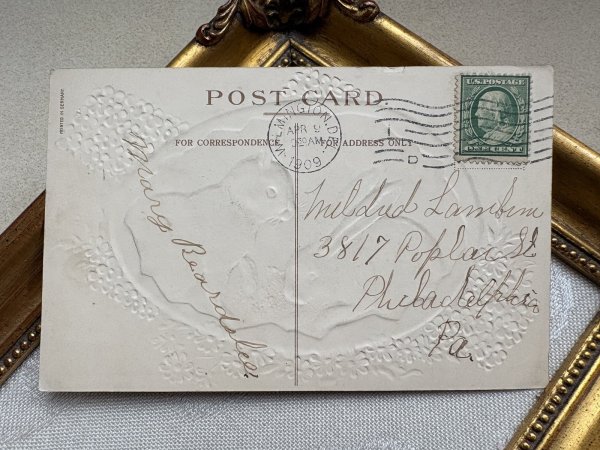 PRINTED IN GERMANY
POST CARD.
FOR CORRESPONDENCE
FOR ADDRESS ONLY
WILMINGTON, DEL.
APR 9
AM
1909
U.S. POSTAGE
ONE CENT
Mary Beardslee
Mildred
3817 Poplar St
Philadelphia
Pa.